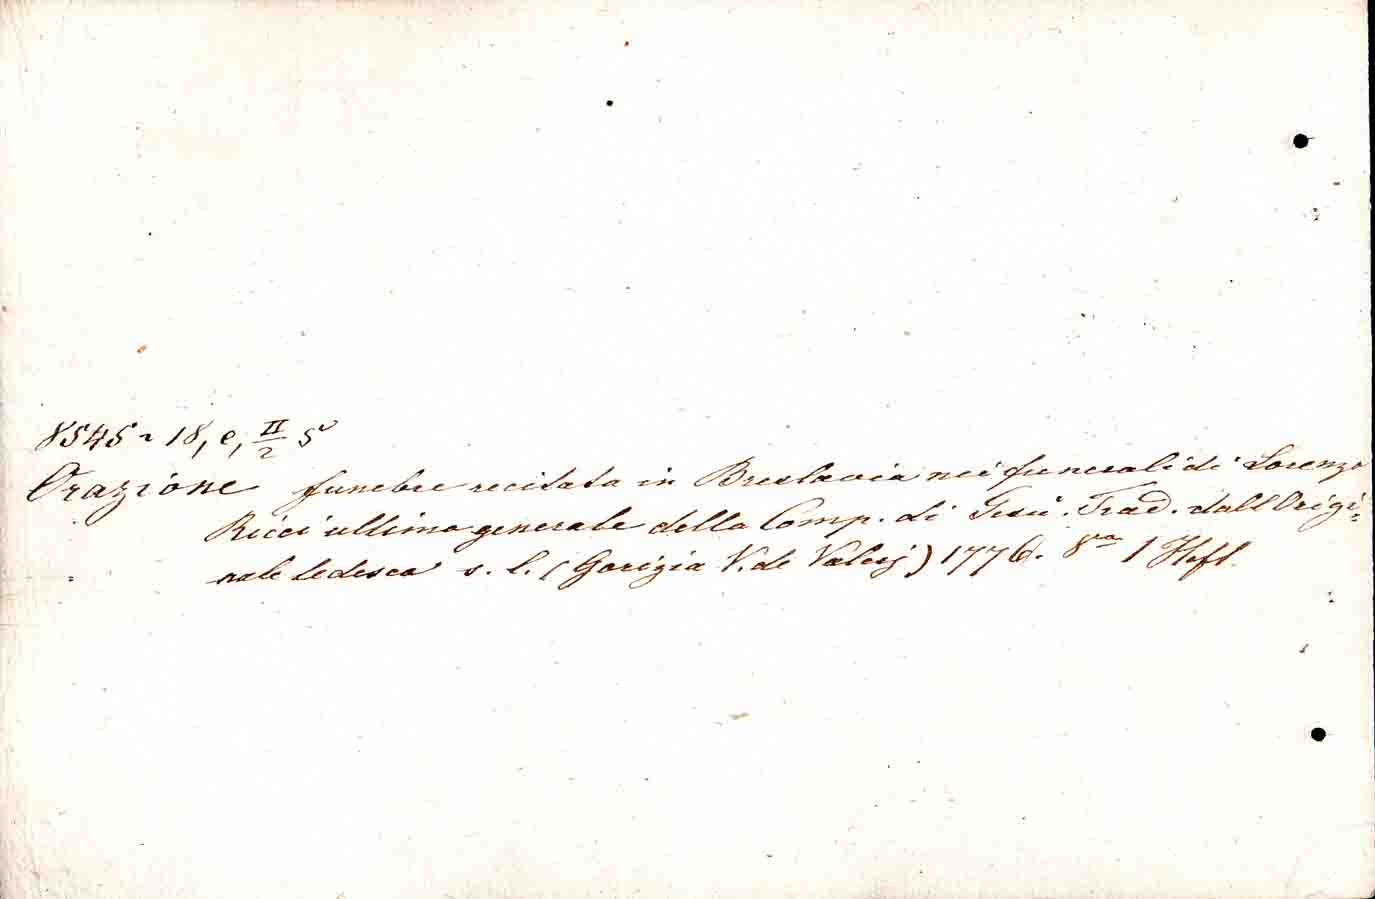 8545 ~ 18, e, II/2 5
Orazione funebre recitata in Breslavia nei funerali di Lorenzo
Ricci ultimo generale della Comp. di Gesù. Trad. dall Origi=
nale tedesca s. l. (Gorizia V. de Valerj) 1776. 8vo 1 Hft.